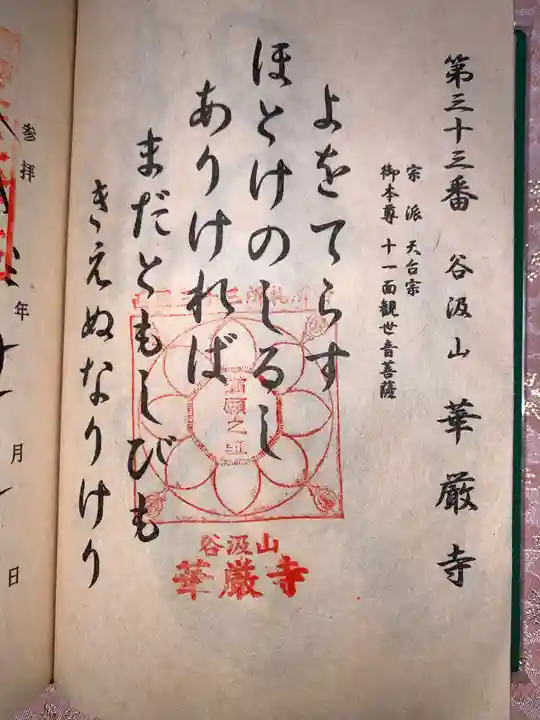 第三十三番 谷汲山 華厳寺
宗派 天台宗
御本尊 十一面観世音菩薩
よをてらす
ほとけのしるし
ありければ
まだともしびも
きえぬなりけり
西国三十三所札所
満願之証
谷汲山
華厳寺
参拝 年 月 日